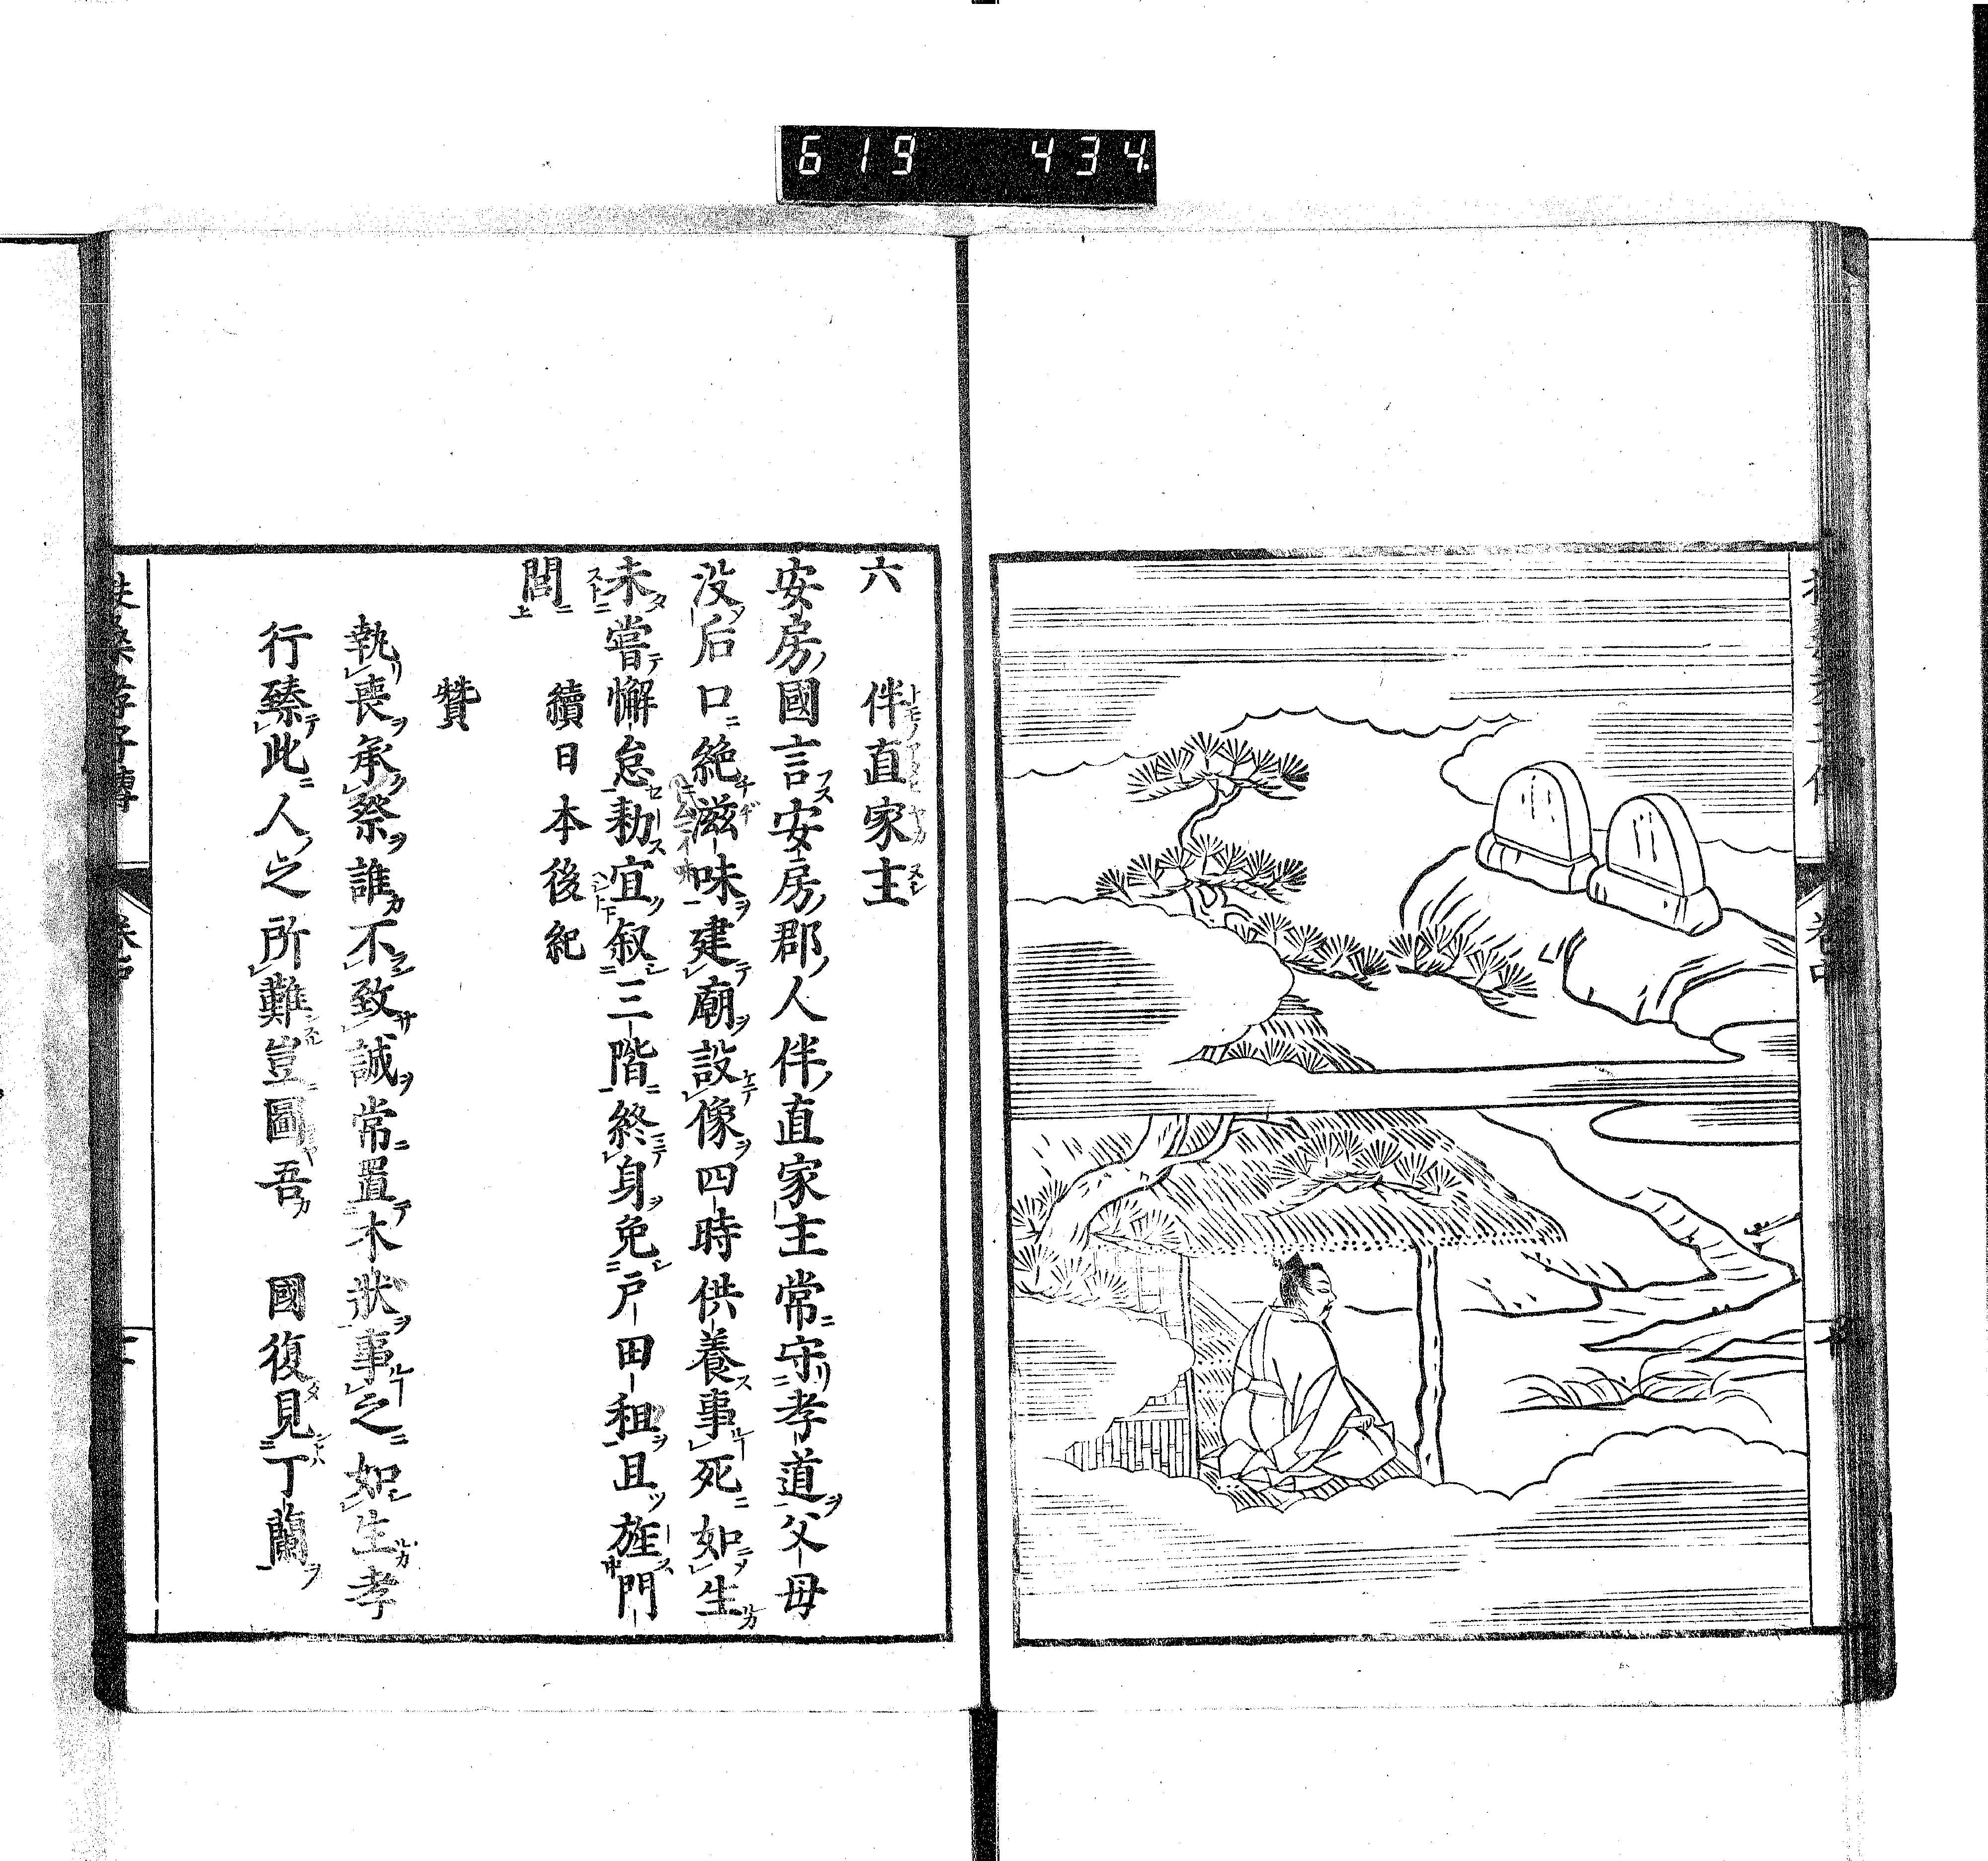 619 434
六 伴直家主
安房國言安房郡人伴直家主常守孝道父母
没后口絶滋味建廟設像四時供養事死如生
未嘗懈怠勅宜叙三階終身免戸田租且旌門
閭
續日本後紀
贊
執喪承祭誰不致誠常置木狀事之如生孝
行臻此人之所難豈圖吾 國復見丁蘭